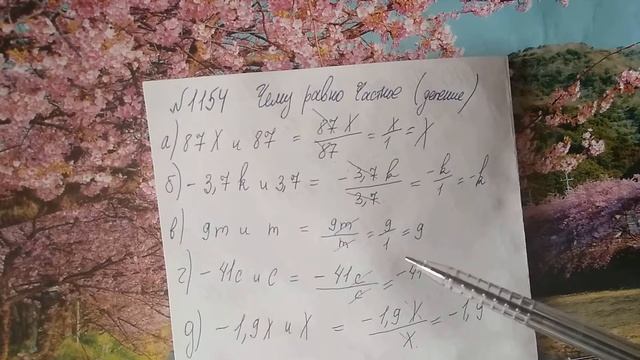 №1154 Чему равно частное (деление)
а) 87x и 87 = 87x/87 = x/1 = x
б) -3,7k и 3,7 = -3,7k/3,7 = -k/1 = -k
в) 9m и m = 9m/m = 9/1 = 9
г) -41c и c = -41c/c = -41
д) -1,9x и x = -1,9x/x = -1,9